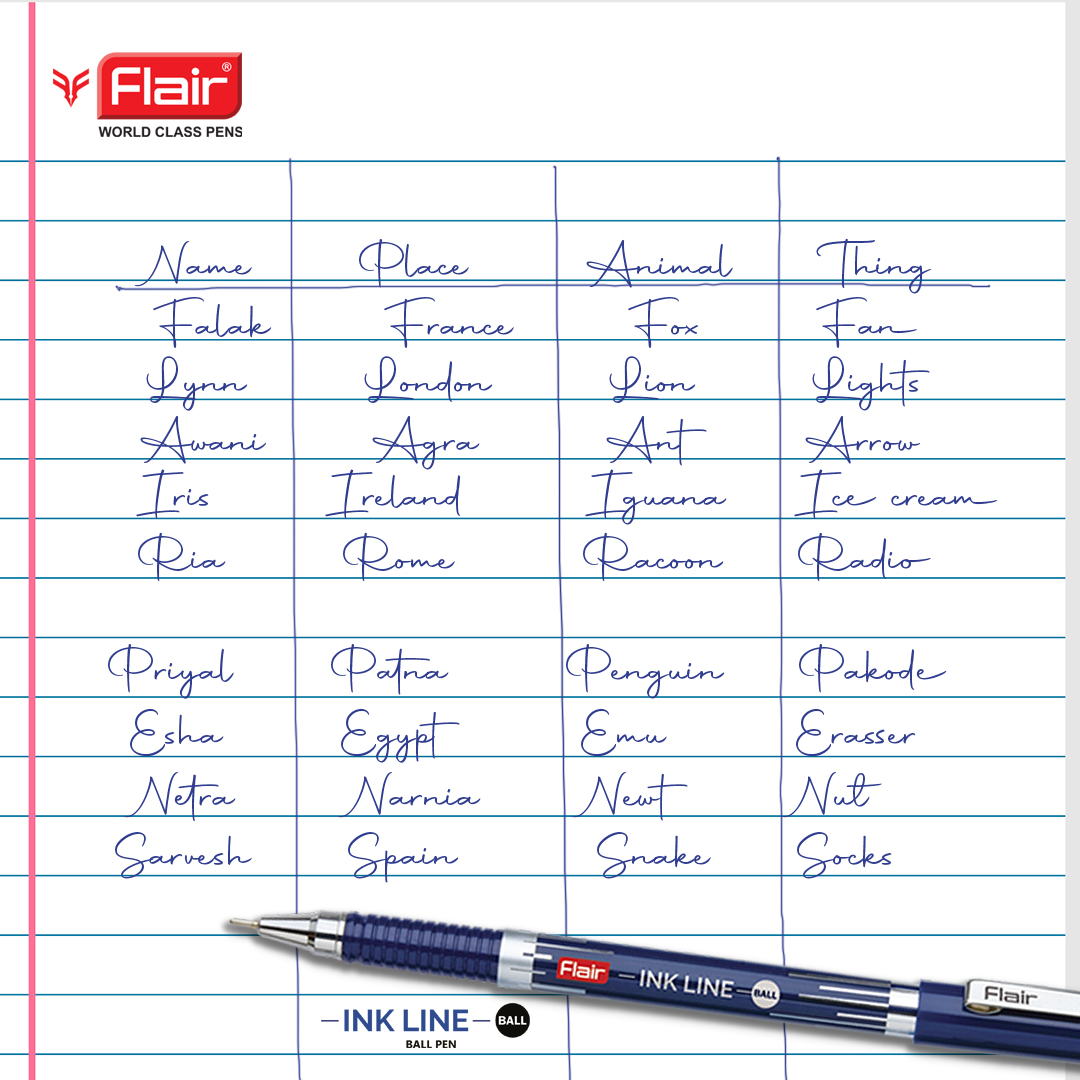 Flair®
WORLD CLASS PENS
Name Place Animal Thing
Falak France Fox Fan
Lynn London Lion Lights
Awani Agra Ant Arrow
Iris Ireland Iguana Ice cream
Ria Rome Racoon Radio
Priyal Patna Penguin Pakode
Esha Egypt Emu Erasser
Netra Narnia Newt Nut
Sarvesh Spain Snake Socks
Flair INK LINE BALL Flair
INK LINE BALL
BALL PEN